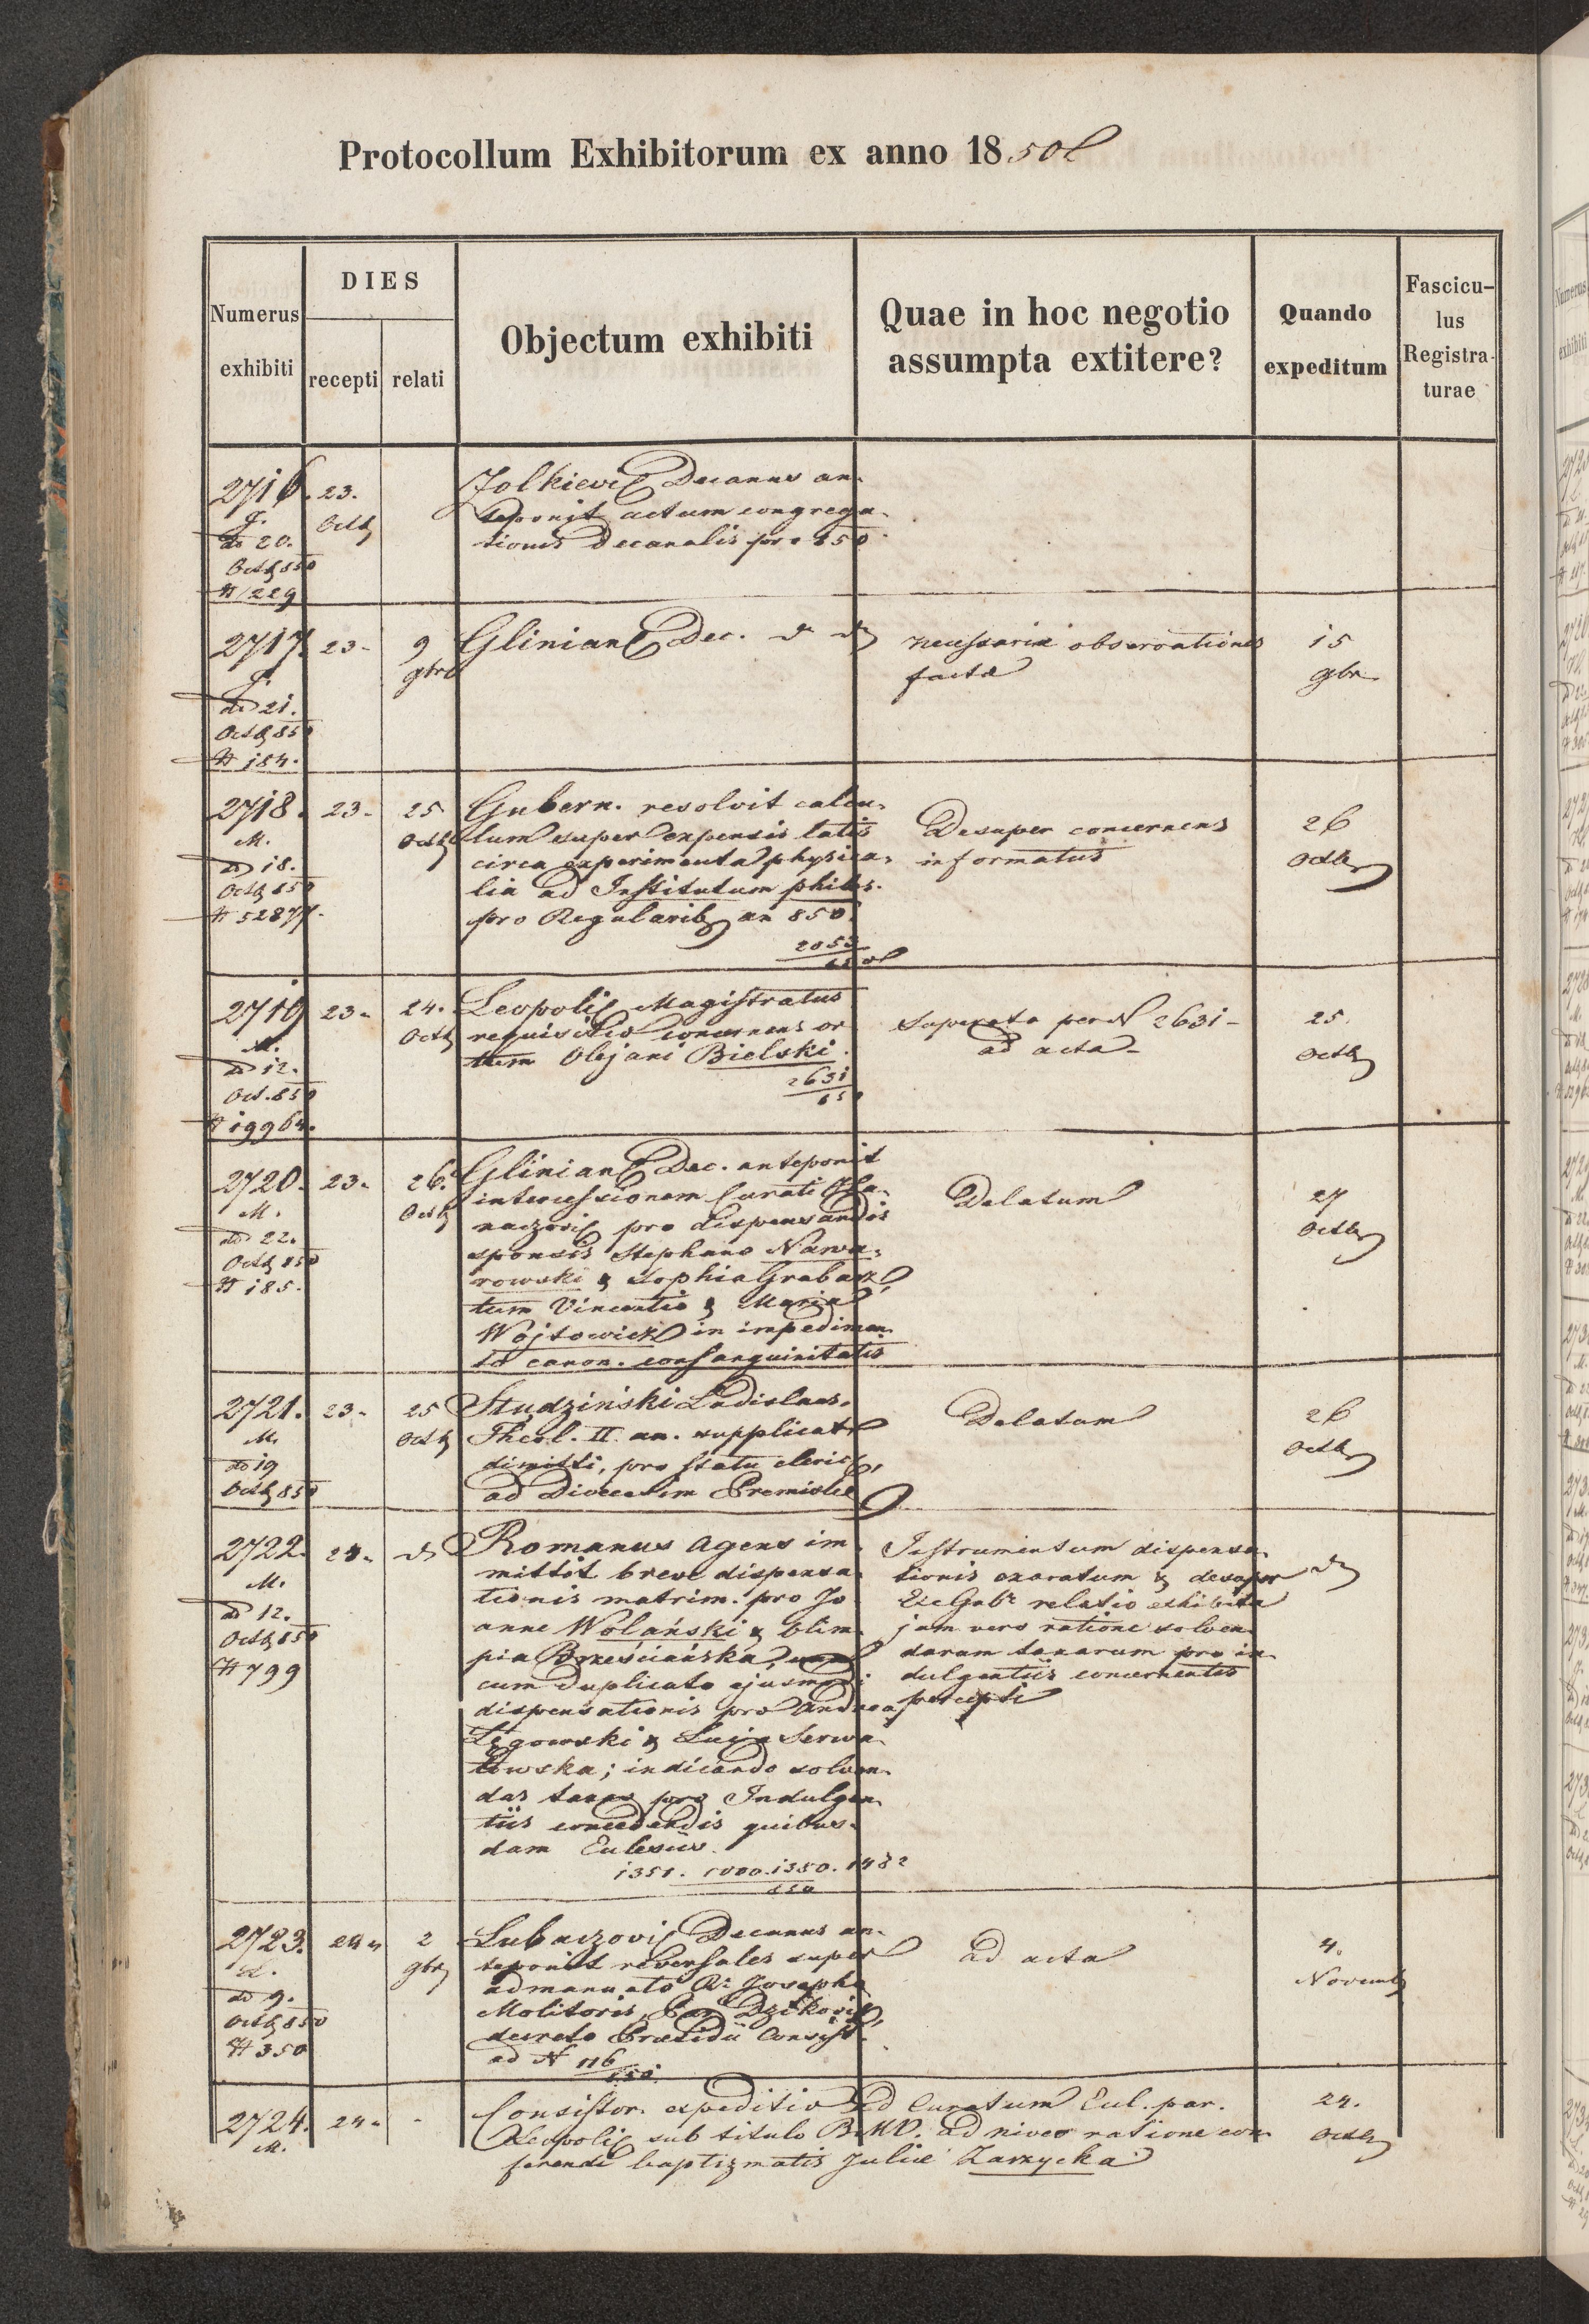 Protocollum Exhibitorum ex anno 1850
Numerus exhibiti
DIES
recepti
relati
Objectum exhibiti
Quae in hoc negotio assumpta extitere?
Quando expeditum
Fascicu-
lus
Registra-
turae
2716. 23.
Octb
dd 20.
Octb 850
N 229
Decanus an-
teponit actum congrega-
tionis Decanalis pro 850
2717. 23-
9
9br
dd 21.
Octb 850
N 184.
Dec.
necessariæ observationes
factæ
15
9br
2718. 23-
M.
dd 18.
Octb 850
N 52877.
25
Octb
Gubern. resolvit calcu-
lum super expensis latis
circa experimenta physica-
lia ad Institutum philos.
pro Regularib an 850
2053
850
Desuper concernens
informatus
26
Octb
2719 23-
M.
dd 12.
Oct. 850
N 19964.
24.
Octb
Leopoli Magistratus
requisitio concernens or-
tum Olejani Bielski.
2631
850
Superato per N 2631-
ad acta-
25.
Octb
2720. 23-
M.
dd 22.
Octb 850
N 185.
26.
Octb
Dec. anteponit
intercessionem Curati
pro dispensandis
sponsis Stephano Nawa-
rowski & Sophia Grabarz,
tum Vincentio & Maria
Wojtowicz in impedimen-
to canon. consanguinitatis
Delatum
27
Octb
2721. 23-
M.
dd 19
Octb 850
25
Octb
Studziński Ladislaus.
Theol. II. an. supplicat
dimitti, pro statu cleric,
ad Dioecesim Premislie
Delatum
26
Octb
2722. 24-
M.
dd 12.
Octb 850
N 799
Romanus Agens im-
mittit breve dispensa-
tionis matrim. pro Jo-
anne Wolański & Olim-
pia
cum duplicato ejusmodi
dispensationis pro Andrea
Łęgowski & Lucia Serwa-
towska; indicando solven-
das taxas pro Indulgen-
tiis concedendis quibus-
dam Ecclesiis.
1351. 1000. 1380. 1482
850
Instrumentum dispensa-
tionis exaratum & desuper
relatio exhibita
jam vero ratione solven-
darum taxarum pro in-
dulgentiis concernentes
percepti
2723. 24-
dd 9.
Octb 850
N 350
2
9br
Lubaczovi Decanus an-
teponit reversales super
admanuato Josepho
Molitoris,
decreto Præsidii Consist.
ad N 116
850
ad acta
4.
Novemb
2724. 24-
M.
-
Consistor. expeditio ad Curatum Eccl. par.
Leopoli sub titulo B.M.V. ad nives ratione con-
ferendi baptizmatis Juliæ Zarzycka
24.
Octb